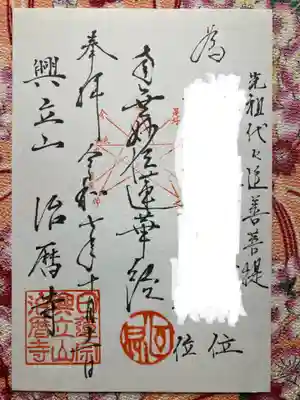 先祖代々追善菩提
為
位
位
南無妙法蓮華経
奉拝 令和 年十月 日
興立山 治暦寺
日蓮宗
興立山
治暦寺